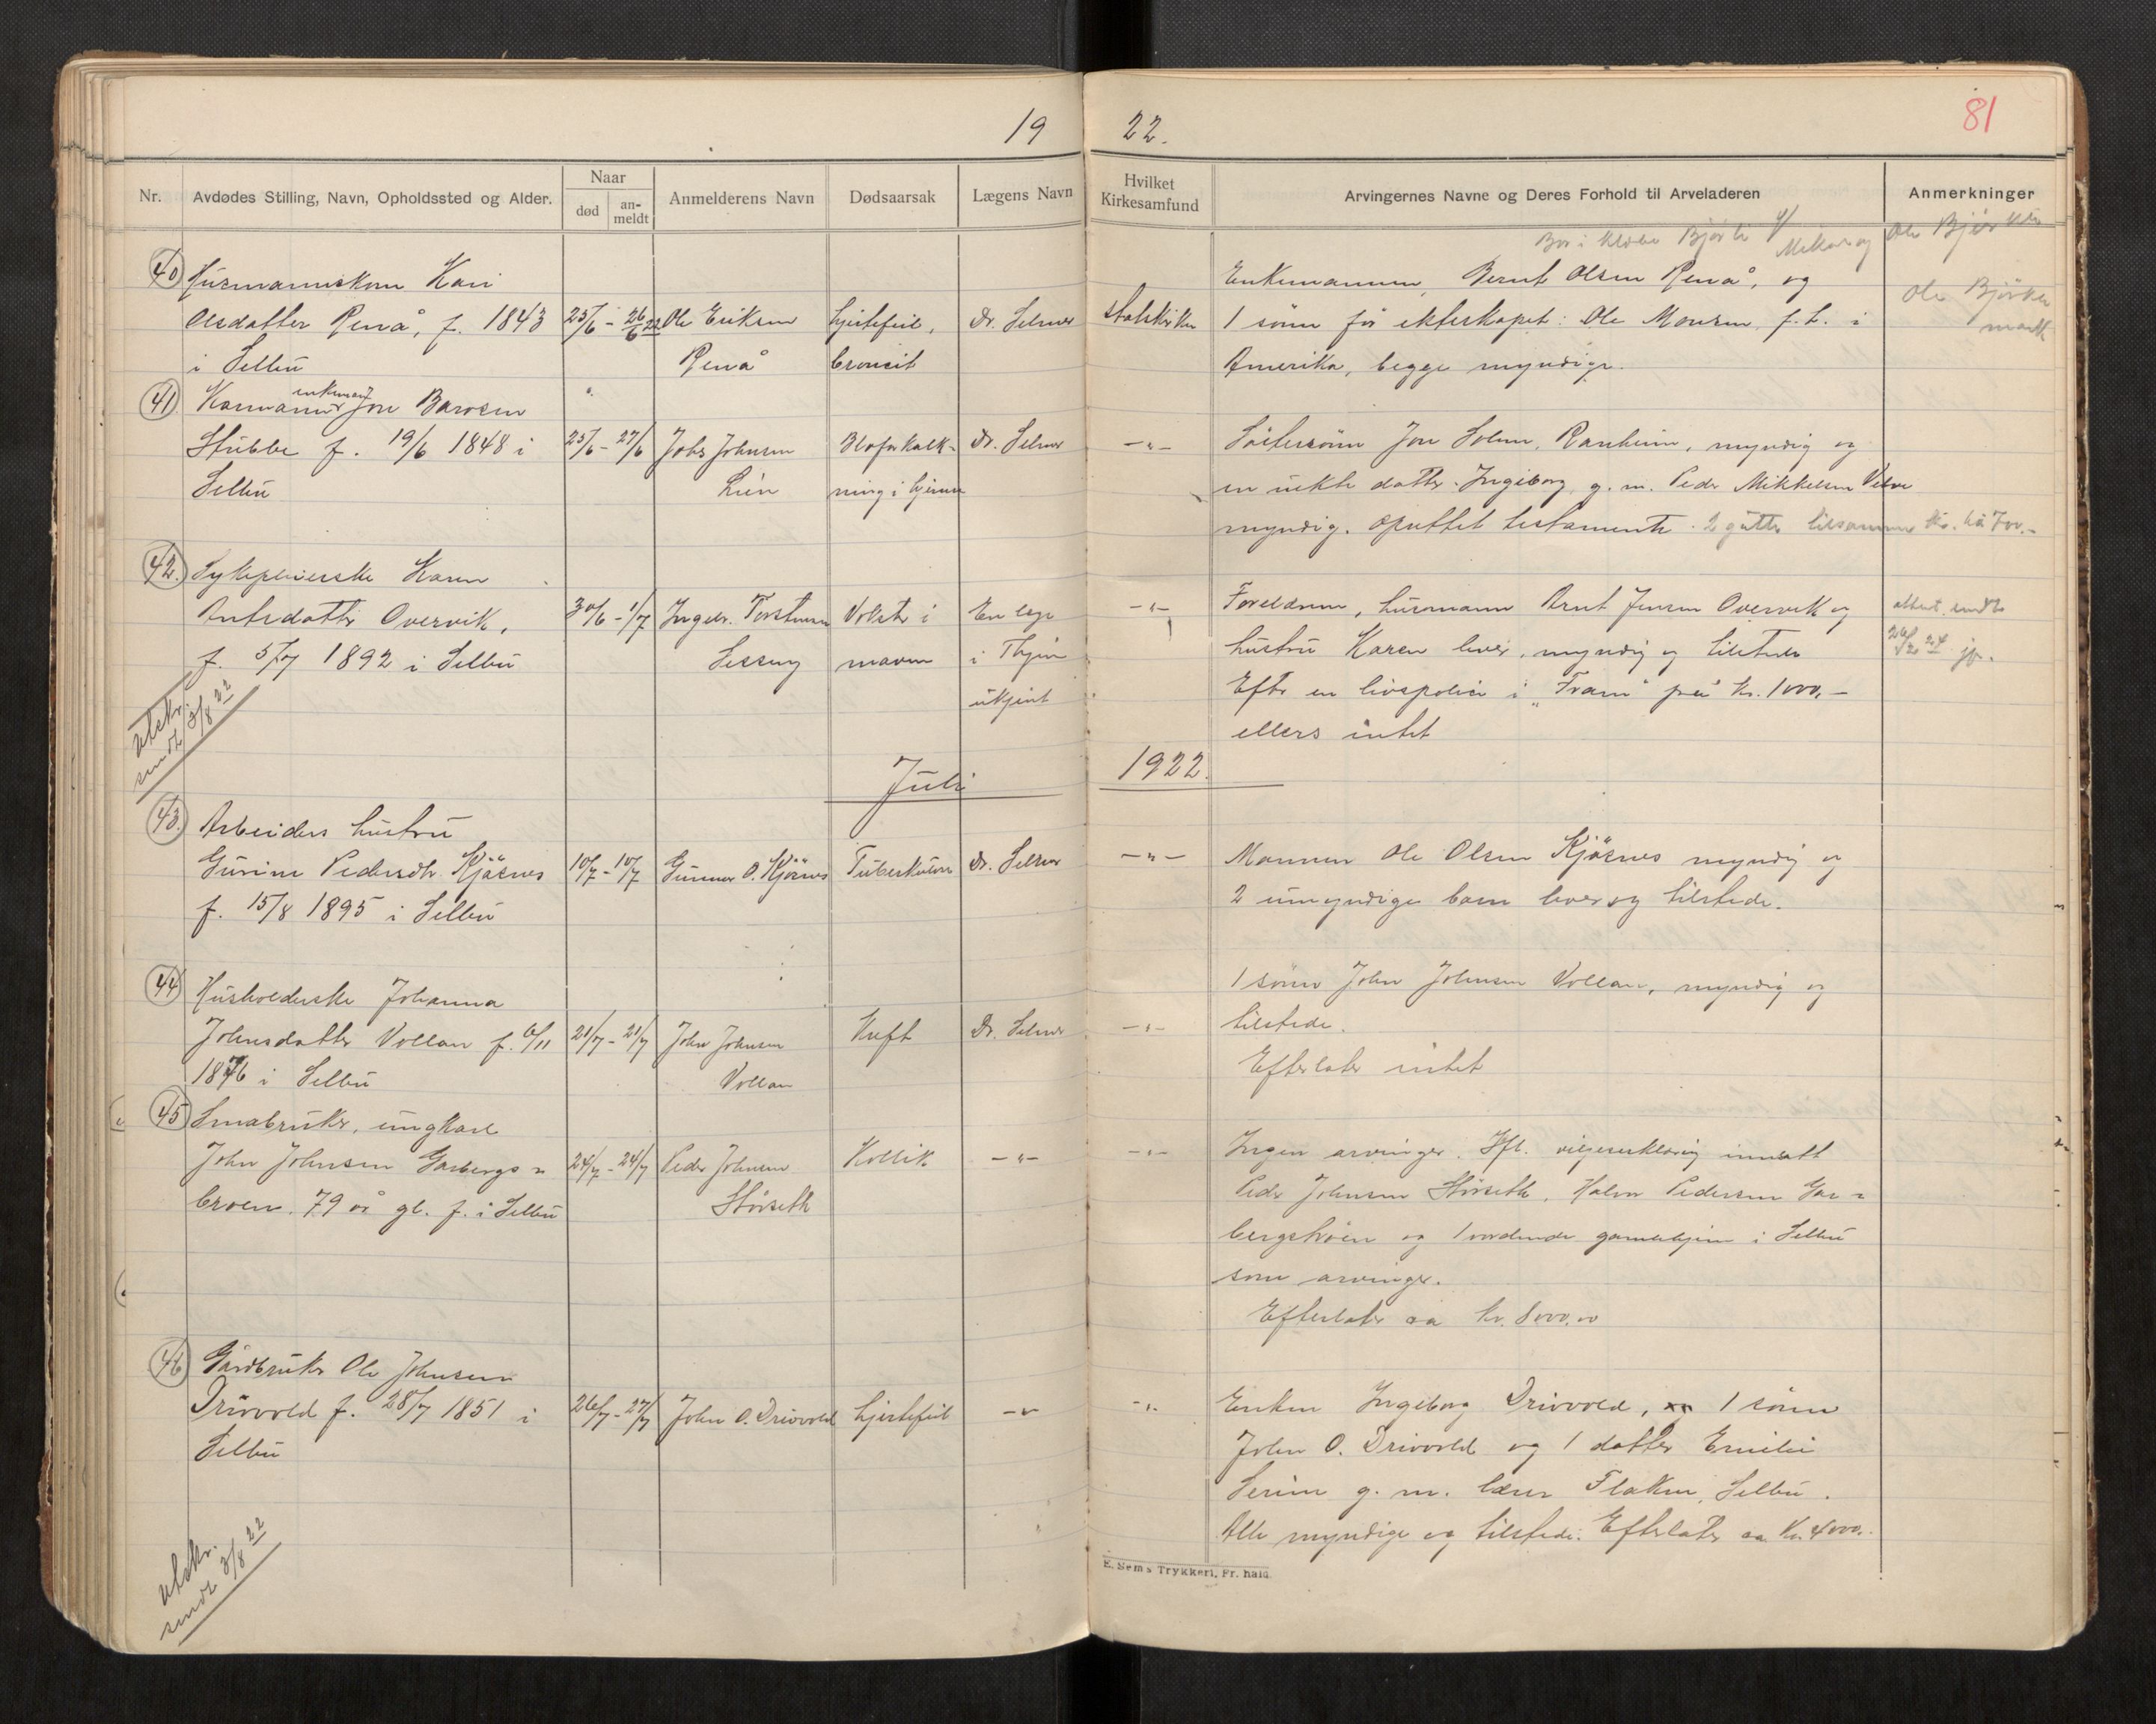 19
22.
81
Nr.
Avdødes Stilling, Navn, Opholdssted og Alder.
Naar
død
an-
meldt
Anmelderens Navn
Dødsaarsak
Lægens Navn
Hvilket
Kirkesamfund
Arvingernes Navne og Deres Forhold til Arveladeren
Anmerkninger
Bor i Klæbu
40 Husmannskone Kari
Olsdatter Renå, f. 1843
i Selbu
25/6 - 26/6 22
Ole Eriksen
Renå
hjertefeil,
bronsit
Dr. Selmer
Statskirken
Enkemannen, Bernt Olsen Renå, og
1 sönn før ekteskapet: Ole Monsen, f.t. i
Amerika, begge myndige.
Ole
41 Kaarmann enkemann Jon Barosen
Stubbe f. 19/6 1848 i
Selbu
25/6 - 27/6
Johs Johnsen
Lien
ning i hjernen
Dr. Selmer
-"-
Søstersönn Jon Solem, Ranheim, myndig og
en uekte datter Ingeborg, g. m. Peder Mikkelsen
myndig. Oprettet testamente. 2 gutter tilsammen
42. Sykepleierske Karen
Arntsdatter Overvik,
f. 5/7 1892 i Selbu
30/6 - 1/7
Ingebr. Torstensen
Vekst i
maven
En lege
i Thjem
ukjent
-"-
Foreldrene, husmann Arnt Jensen Overvik og
hustru Karen lever, myndig og tilstede
Efter en livspolise i "Fram" på kr. 1000,-
ellers intet
attest sendt
26/2 24
Utskr.
sendt 3/8 22
Juli
1922.
43. Arbeiders hustru
Gurine Pedersdtr. Kjösnes
f. 15/8 1895 i Selbu
10/7 - 10/7
Gunnar O. Kjösnes
Tuberkulose
Dr. Selmer
-"-
Mannen Ole Olsen Kjösnes myndig og
2 umyndige barn lever og tilstede.
44 Husholderske Johanna
Johnsdatter Vollan f. 6/11
1876 i Selbu
21/7 - 21/7
John Johnsen
Vollan
Kreft
Dr. Selmer
-"-
1 sönn John Johnsen Vollan, myndig og
tilstede.
Efterlater intet
45 Småbruker, ungkarl
John Johnsen Garbergs=
broen. 79 år gl. f. i Selbu
24/7 - 24/7
Peder Johnsen
Störseth
Kollik
-"-
-"-
Ingen arvinger. Ifl. viljeserklæring innsatt
Peder Johnsen Störseth, Halvor Pedersen Gar=
bergsbroen og 1 vordende gamlehjem i Selbu
som arvinger.
Efterlater ca kr. 8000,00
46 Gårdbruker Ole Johnsen
Drivvold f. 28/7 1851 i
Selbu
26/7 - 27/7
John O. Drivvold
hjertefeil
-"-
-"-
Enken Ingeborg Drivvold, 1 sönn
John O. Drivvold og 1 datter Emilie
Serine g. m. lærer Flaken, Selbu.
Alle myndige og tilstede. Efterlater ca kr. 4000,-
Utskr.
sendt 3/8 22
E. Sems Trykkeri, Fr.hald.